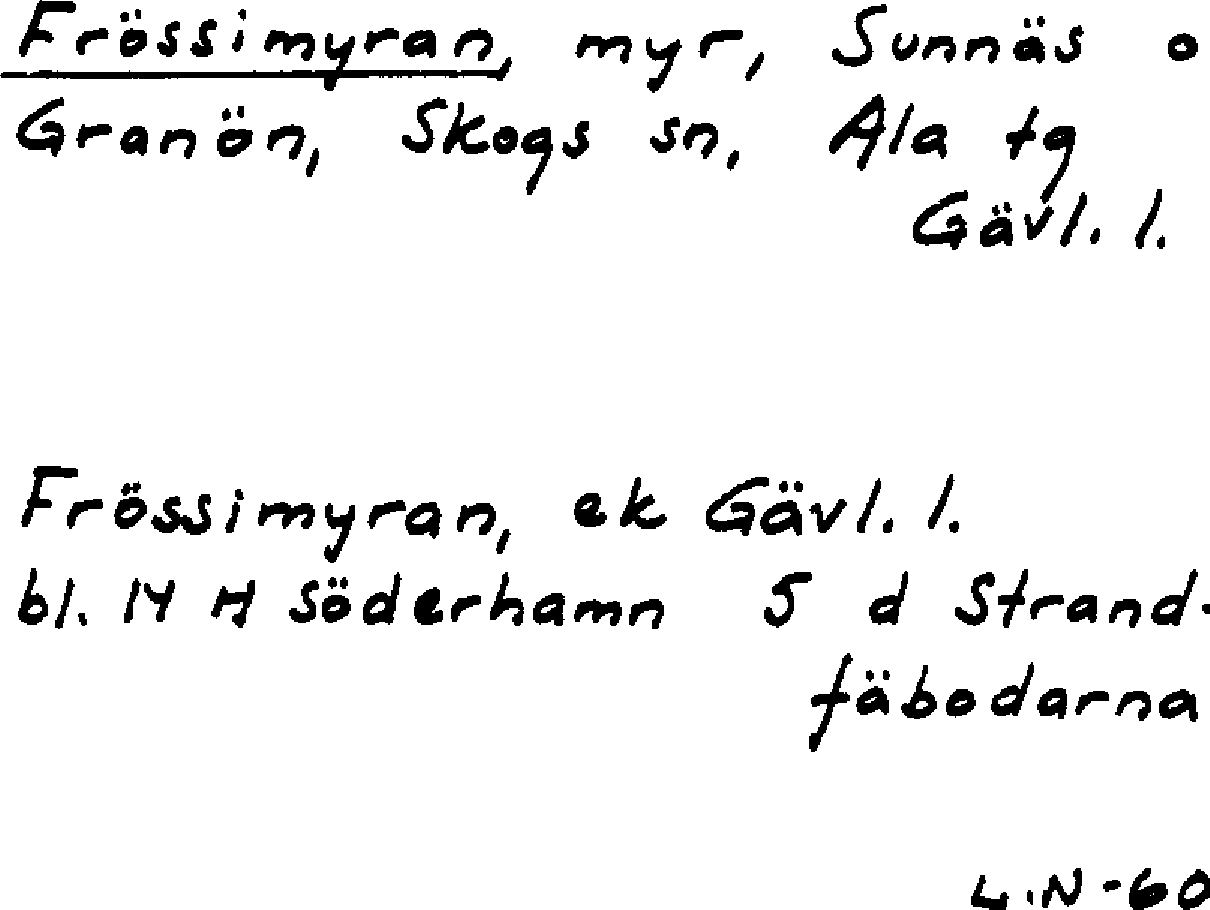 Frössimyran, myr, Sunnäs o
Granön, Skogs sn, Ala tg
Gävl. l.
Frössimyran, ek Gävl. l.
bl. 14 H Söderhamn 5 d Strand-
fäbodarna
L.N-60